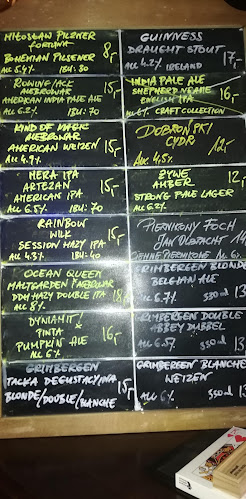 MIŁOSŁAW PILZNER
FORTUNA
BOHEMIAN PILSENER 8,-
ALC 5.4% IBU: 30
ROWING JACK
AleBROWAR 15,-
AMERICAN INDIA PALE ALE
ALC 6.2% IBU: 70
KIND OF MAGIC
AleBROWAR 15,-
AMERICAN WEIZEN
ALC 4.9%
HERA IPA
ARTEZAN 15,-
AMERICAN IPA
ALC 6.5% IBU: 70
RAINBOW
WILK 15,-
SESSION HAZY IPA
ALC 4.3% IBU: 40
OCEAN QUEEN
MALTGARDEN
DDH HAZY DOUBLE IPA
ALC 8%
DYNIAMIT
PINTA 16,-
PUMPKIN ALE
ALC 6%
GRIMBERGEN
TACKA DEGUSTACYJNA 15,-
BLONDE/DOUBLE/BLANCHE
GUINNESS
DRAUGHT STOUT 17,-
ALC 4.2% IRELAND
INDIA PALE ALE
SHEPHERD NEAME 16,-
ENGLISH IPA
CRAFT COLLECTION
DOBROŃSKI
CYDR 12,-
ALC. 4.5%
ŻYWE
AMBER 12,-
STRONG PALE LAGER
ALC 6.2%
PIERNIKOWY FOCH
JAN OLBRACHT 14
CIEMNE PIERNIKOWE ALC
GRIMBERGEN BLONDE
BELGIAN ALE
ALC 6.7% 13
GRIMBERGEN DOUBLE
ABBEY DUBBEL
ALC 6.5% 13
GRIMBERGEN BLANCHE
WEIZEN
ALC 6% 13